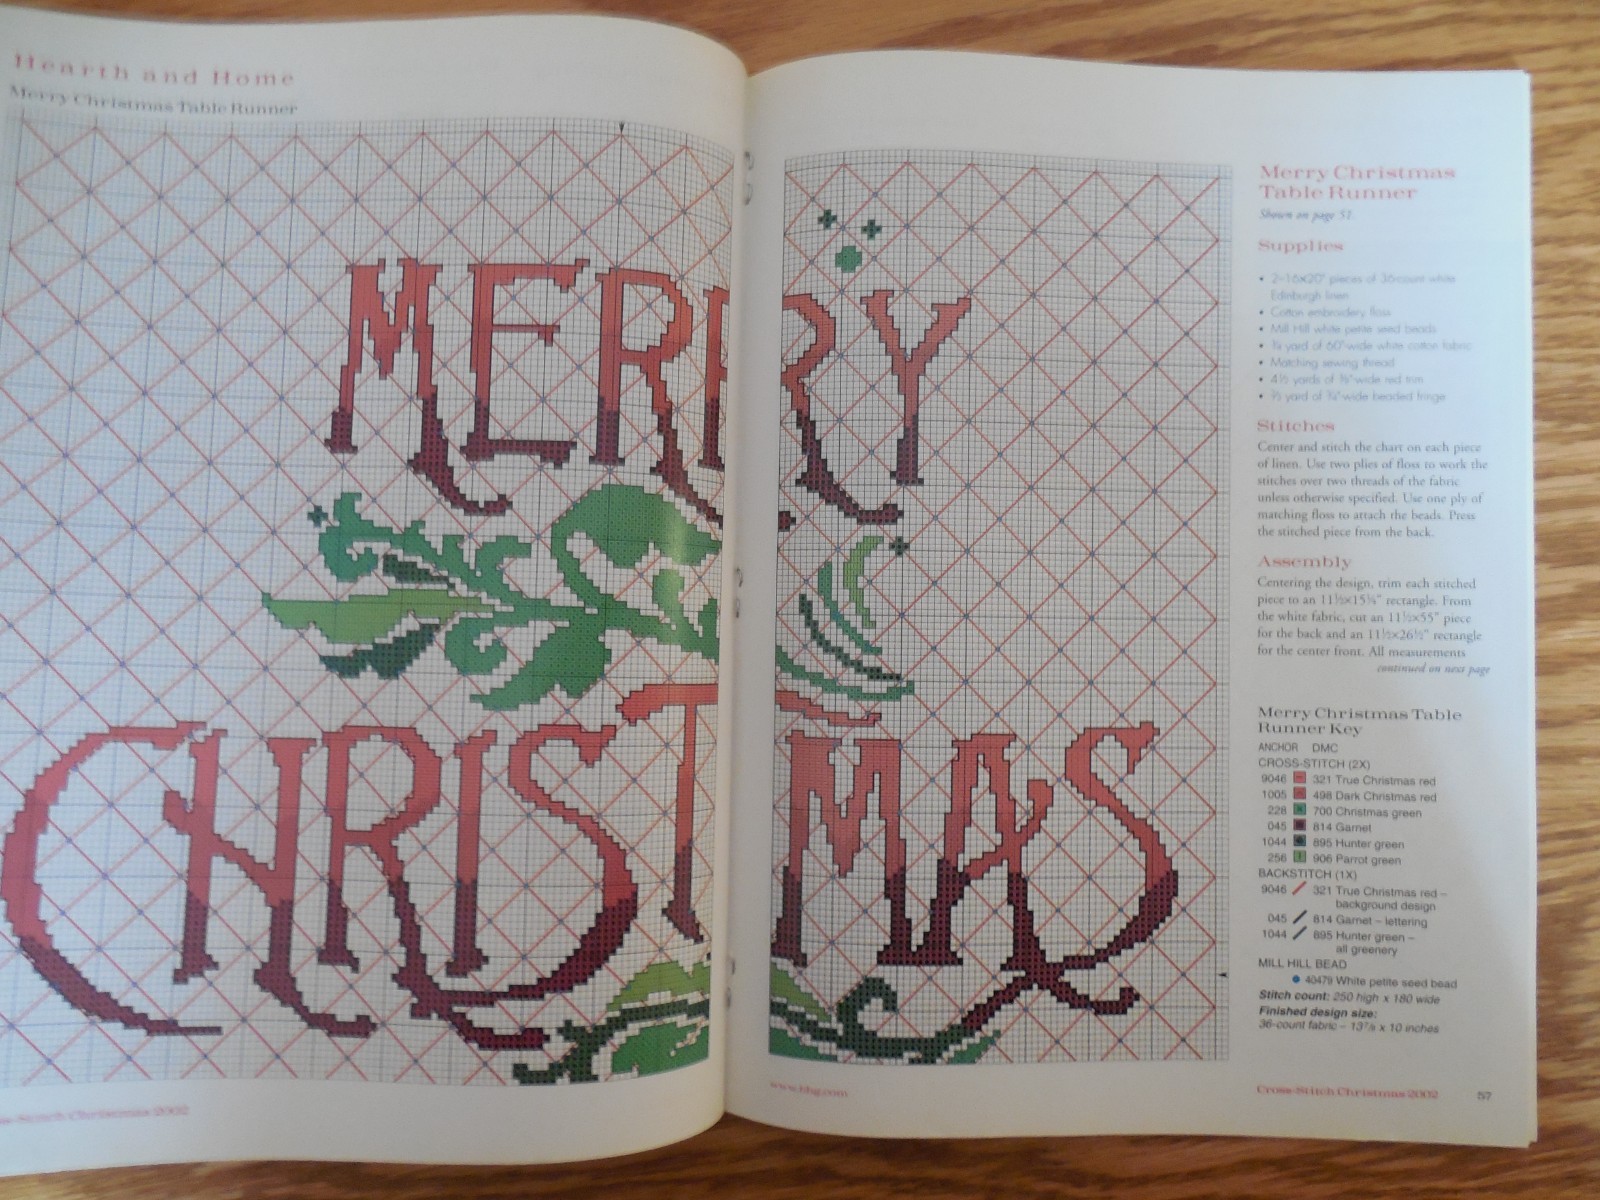 Hearth and Home
Merry Christmas Table Runner
MERRY
CHRISTMAS
ss-Stitch Christmas 2002
Merry Christmas
Table Runner
Shown on page 51.
Supplies
• 2–16x20" pieces of 36-count white
Edinburgh linen
• Cotton embroidery floss
• Mill Hill white petite seed beads
yard of 60"-wide white cotton fabric
• Matching sewing thread
• 4½ yards of ⅜"-wide red trim
yard of ¾"-wide beaded fringe
Stitches
Center and stitch the chart on each piece
of linen. Use two plies of floss to work the
stitches over two threads of the fabric
unless otherwise specified. Use one ply of
matching floss to attach the beads. Press
the stitched piece from the back.
Assembly
Centering the design, trim each stitched
piece to an rectangle. From
the white fabric, cut an 11½x55" piece
for the back and an 11½x26½" rectangle
for the center front. All measurements
continued on next page
Merry Christmas Table
Runner Key
ANCHOR DMC
CROSS-STITCH (2X)
9046 321 True Christmas red
1005 498 Dark Christmas red
228 700 Christmas green
045 814 Garnet
1044 895 Hunter green
256 906 Parrot green
BACKSTITCH (1X)
9046 321 True Christmas red –
background design
045 814 Garnet – lettering
1044 895 Hunter green –
all greenery
MILL HILL BEAD
40479 White petite seed bead
Stitch count: 250 high x 180 wide
Finished design size:
36-count fabric – 13⅞ x 10 inches
www.bhg.com
Cross-Stitch Christmas 2002 57